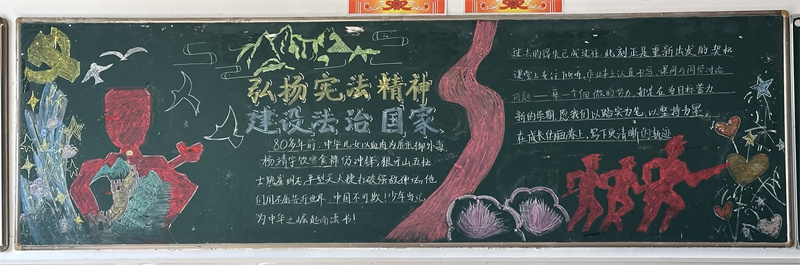 弘扬宪法精神
建设法治国家
80多年前,中华儿女以血肉为盾抵御外辱
杨靖宇饮雪食 万冲锋,狼牙山五壮
士跳崖明志,平型关大捷打破 敌神话,他
们用不屈告诉世界,中国不可欺!少年当记,
为中华之崛起而读书!
过去的得失已成过往,此刻正是重新出发的契机
课堂上专注倾听,作业本上认真书写,课间与同学讨论
问题——每一个细微的努力,都是在为目标蓄力
新的学期,愿我们以踏实为笔,以坚持为墨,
在成长的画卷上,写下更清晰的轨迹